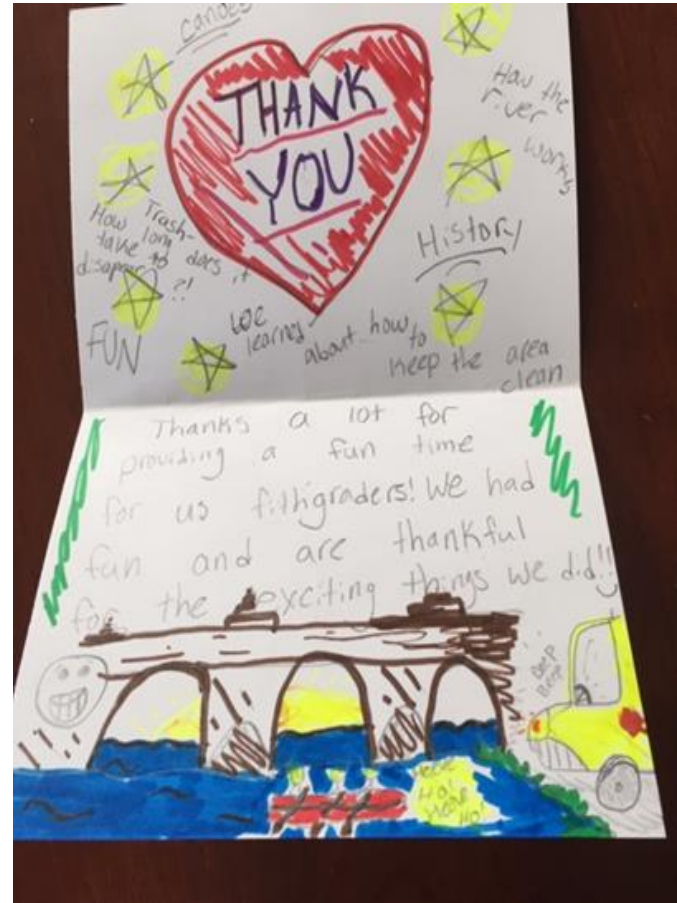 canoes
THANK
YOU
How the
river
works
Trash-
How long does it
take to
disapear?!
History
FUN
We
learned
about how
to
keep the area
clean
Thanks a lot for
providing a fun time
for us fithgraders! We had
fun and are thankful
for the exciting things we did!!
Beep
Beep
Heave
Ho!
Heave
Ho!